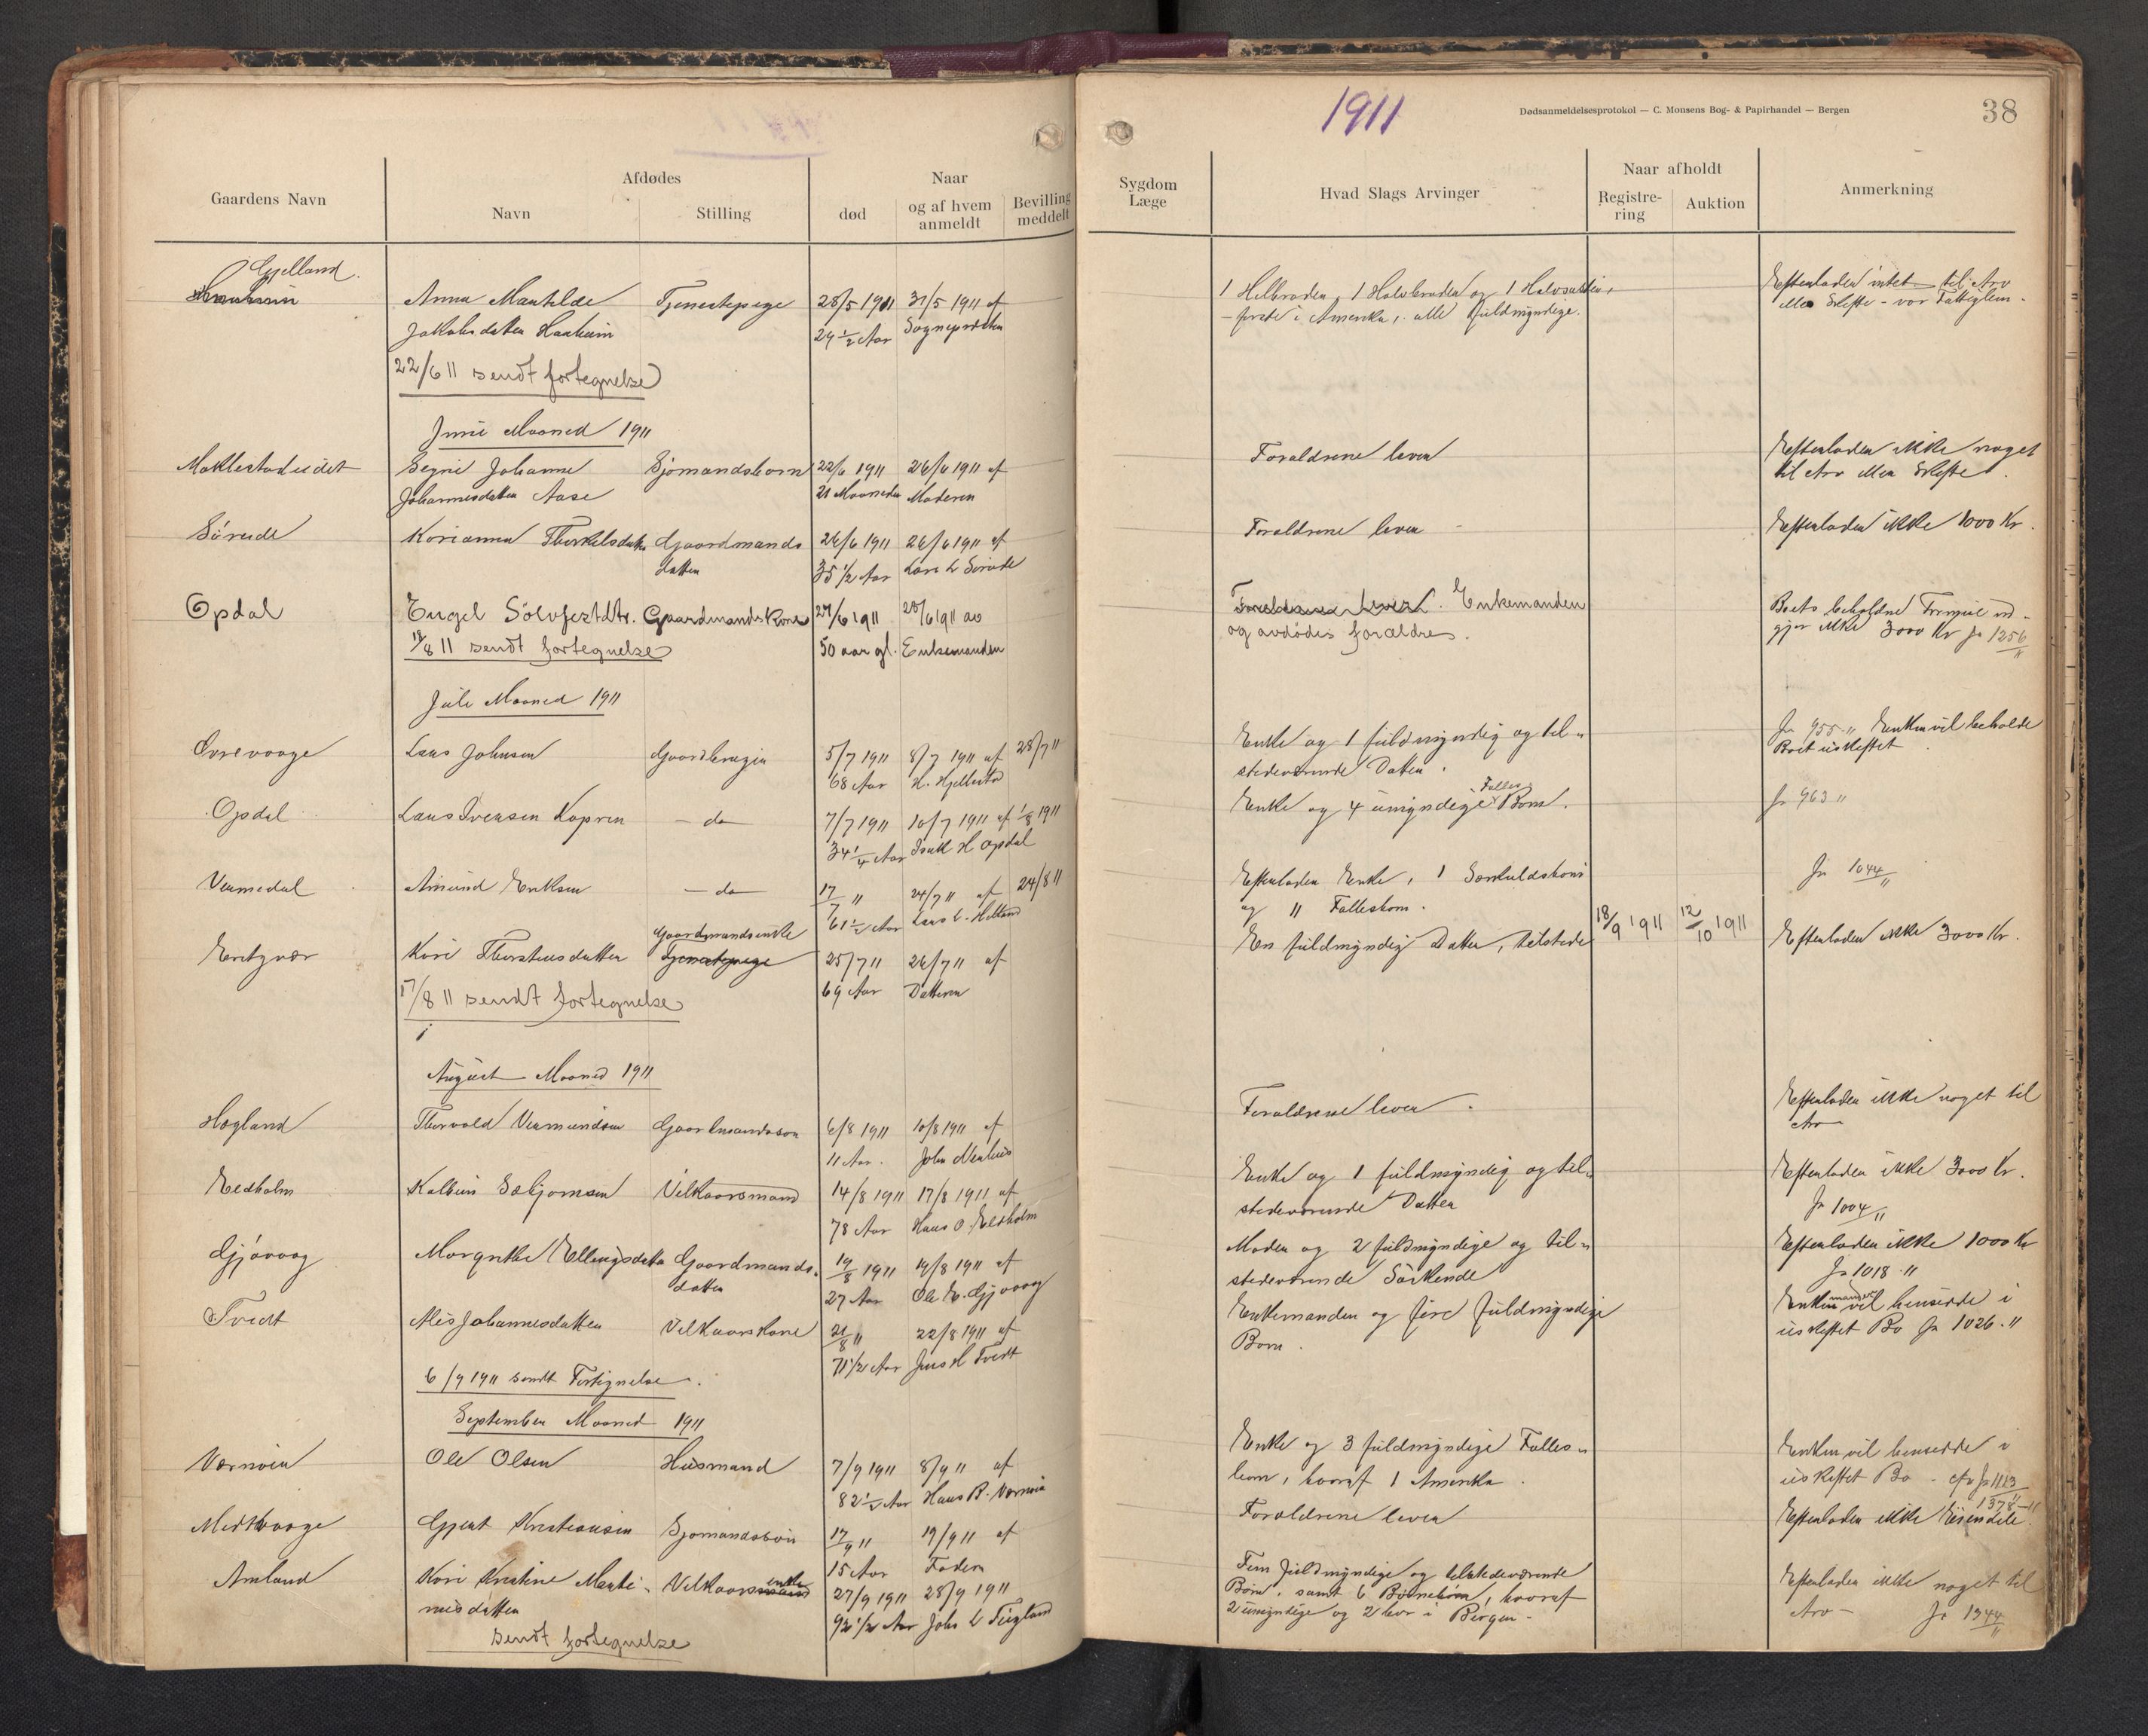 1911
Dødsanmeldelsesprotokol — C. Monsens Bog- & Papirhandel — Bergen
38
Gaardens Navn
Afdødes
Navn
Stilling
Naar
død
og af hvem anmeldt
Bevilling meddelt
Sygdom
Læge
Hvad Slags Arvinger
Naar afholdt
Registre-
ring
Auktion
Anmerkning
Gjelland.
Anna Mathilde Tjenestepige 28/5 1911 31/5 1911 af
Jakobsdatter Haaheim 24 1/2 Aar Sognepresten
1 Helbroder, 1 Halvbroder og 1 Halvsøster,
i Amerika, alle fuldmyndige.
Efterlader intet til Arv
eller Skifte - var Fattiglem.
22/6 11 sendt fortegnelse
Juni Maaned 1911
Signe Johanne Sjømandsbarn 22/6 1911 26/6 1911 af
Johannesdatter Aase 21 Maaneder Moderen
Forældrene lever
Efterlader ikke noget
til Arv eller Skifte.
Gaardmands 26/6 1911 26/6 1911 af
datter 35 1/2 Aar
Forældrene lever
Efterlader ikke 1000 Kr.
Opdal Engel Sölvfestdtr. Gaardmandskone 27/6 1911 28/6 1911 av
50 aar gl. Enkemanden
Forældrene lever. Enkemanden
og avdødes forældre.
Boets beholdne Formue ud-
gjør ikke 3000 Kr Jr 1256/11
18/8 11 sendt fortegnelse
Juli Maaned 1911
Lars Johnsen Gaardbruger 5/7 1911 8/7 1911 af 28/7 11
68 Aar
Enke og 1 fuldmyndig og til-
stedeværende Datter.
Jr 955 11 Enken vil beholde
Boet uskiftet
Opdal Lars Iversen - do - 7/7 1911 10/7 1911 af 1/8 1911
34 1/4 Aar Opdal
Enke og 4 umyndige Fælles Børn.
Jr 963 11
Vermedal Amund Eriksen - do - 17/7 11 24/7 11 af 24/8 11
61 1/2 Aar
Efterlader Enke, 1 Særkuldsbarn
og 11 Fællesbørn.
Jr 1044/11
Gaardmandsenke
Kari Thorsteinsdatter Tjenestepige 25/7 11 26/7 11 af
69 Aar Datteren
En fuldmyndig Datter, tilstede
18/9 1911 12/10 1911
Efterlader ikke 3000 Kr.
17/8 11 sendt fortegnelse
August Maaned 1911
Høgland Thorvald Vermundsen Gaardmandssøn 6/8 1911 10/8 1911 af
11 Aar. John
Forældrene lever.
Efterlader ikke noget til
Arv
Eedholm Vilkaarsmand 14/8 1911 17/8 1911 af
78 Aar Hans O. Eedholm
Enke og 1 fuldmyndig og til-
stedeværende Datter
Efterlader ikke 3000 Kr.
Jr 1004/11
Gjøvaag Margrethe Ellingsdatter Gaardmands- 19/8 1911 19/8 1911 af
datter 27 Aar Ole E. Gjøvaag
Moder og 2 fuldmyndige og til-
stedeværende Søskende
Efterlader ikke 1000 Kr
Jr 1018 11
Tvedt Johannesdatter Vilkaarskone 21/8 11 22/8 1911 af
71 1/2 Aar Jens H Tvedt
Enkemanden og fire fuldmyndige
Børn.
Enkemanden vil hensidde i
uskiftet Bo Jr 1026. 11
6/9 1911 sendt Fortegnelse.
September Maaned 1911
Værnøen Ole Olsen Husmand 7/9 1911 8/9 11 af
82 1/2 Aar Hans B.
Enke og 3 fuldmyndige Fælles-
børn, hvoraf 1 Amerika.
Enken vil hensidde i
uskiftet Bo - cfr Jr 1113
1378-11
Gjert Kristiansen Sjømandssøn 17/9 11 19/9 11 af
15 Aar Fader
Forældrene lever
Efterlader ikke Eiendele.
Amland Kari Kristine Vilkaarsenke 27/9 1911 28/9 1911
92 1/2 Aar John
Fem fuldmyndige og tilstedeværende
Børn, samt 6 Børnebørn, hvoraf
2 umyndige og 2 bor i Bergen -
Efterlader ikke noget til
Arv - Jr 1344/11
sendt fortegnelse